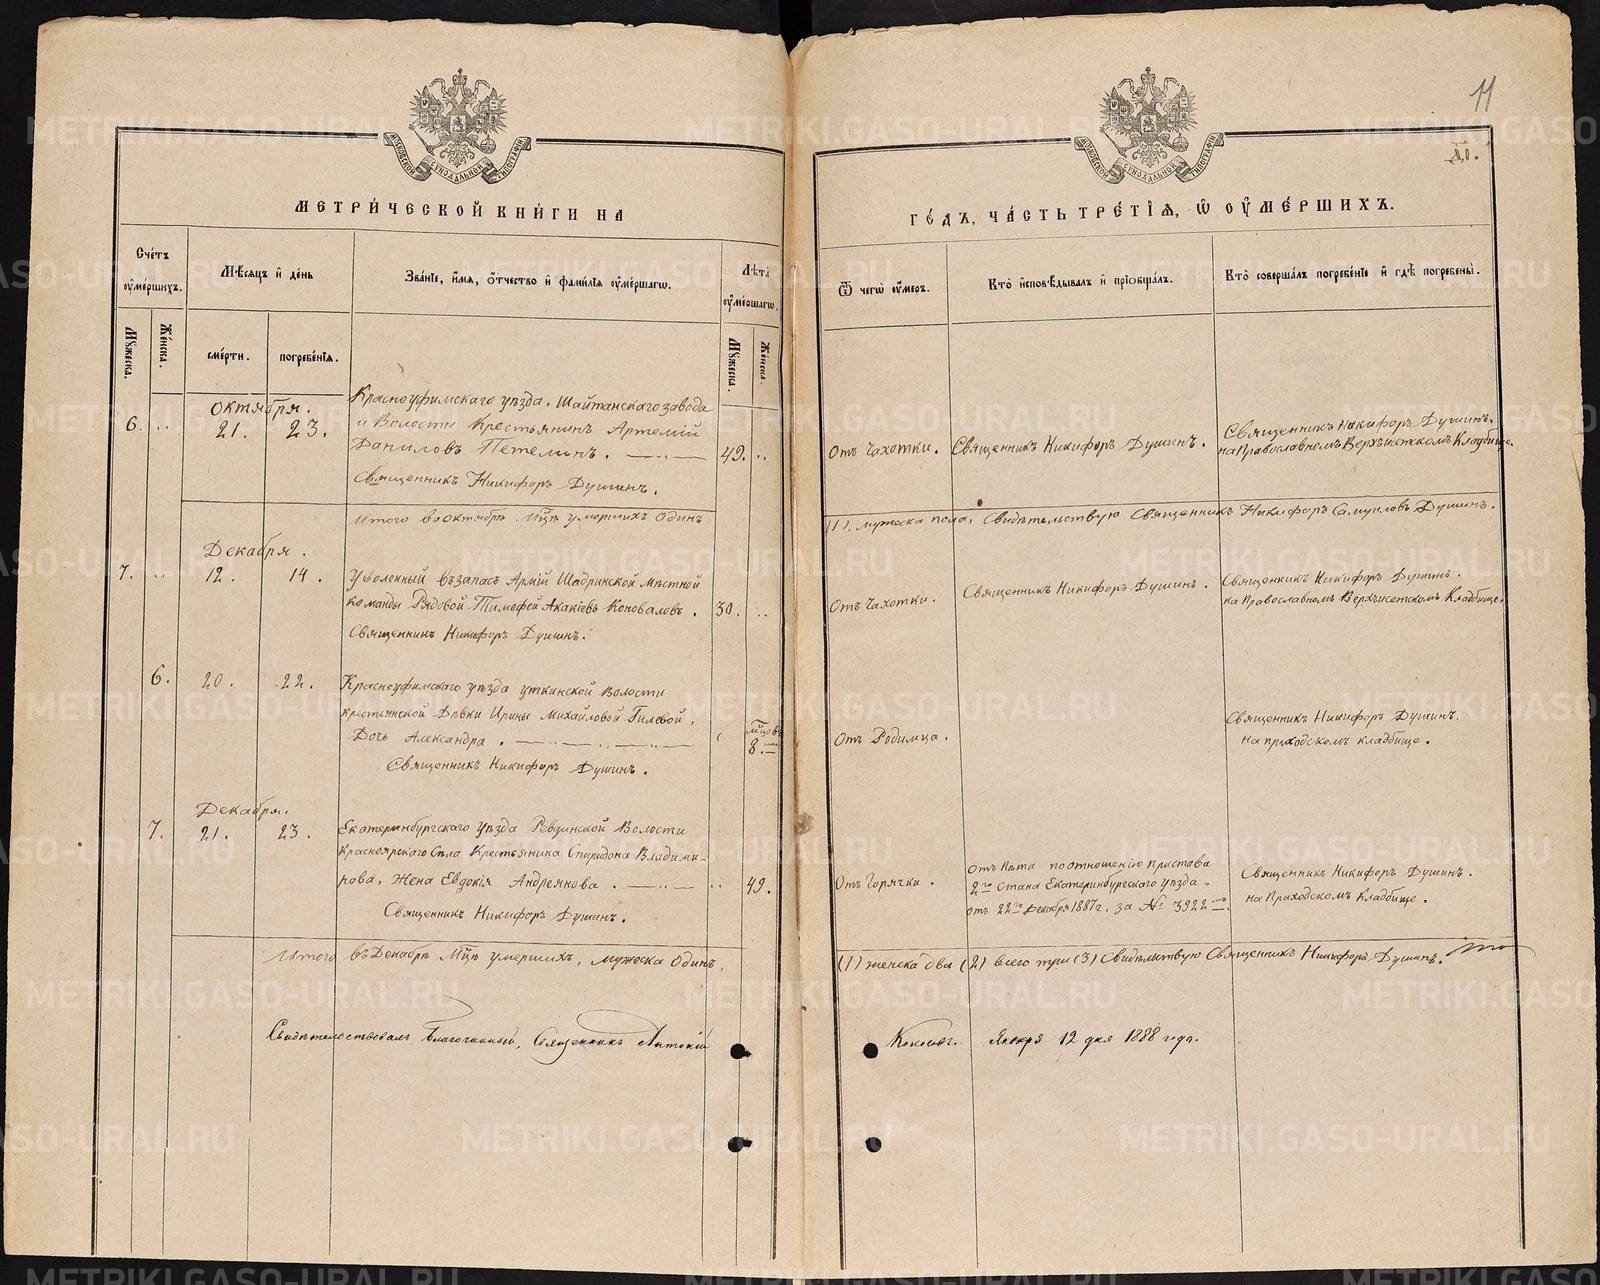 11
МОСКОВСКОЙ СѴНОДАЛЬНОЙ ТИПОГРАФІИ
МОСКОВСКОЙ СѴНОДАЛЬНОЙ ТИПОГРАФІИ
МЕТРИ́ЧЕСКОЙ КНИ́ГИ НА
ГО́ДЪ, ЧА́СТЬ ТРЕ́ТІѦ, Ѡ҆ ОУ҆МЕ́РШИХЪ.
Сче́тъ оу҆ме́ршихъ.
Мѣ́сяцъ и҆ де́нь
Зва́нїе, и҆́мя, ѻ҆́тчество и҆ фами́лїя оу҆ме́ршагѡ.
Лѣ́та оу҆ме́ршагѡ.
Ѿ чегѡ̀ оу҆́меръ.
Кто̀ и҆сповѣ́дывалъ и҆ прїобща́лъ.
Кто̀ соверша́лъ погребе́нїе и҆ гдѣ̀ погребены̀.
Мꙋ́жеска.
Же́нска.
сме́рти.
погребе́нїя.
Мꙋ́жеска.
Же́нска.
Октября.
6. 21. 23.
Красноуфимскаго уѣзда. Шайтанскаго завода
и Волости Крестьянинъ Артемій
Даниловъ Петелинъ.
49.
Священникъ Никифоръ Душинъ.
Отъ Чахотки.
Священникъ Никифоръ Душинъ.
Священникъ Никифоръ Душинъ.
на Православномъ Верхъисетскомъ Кладбище.
Итого въ октябрѣ Мцѣ умершихъ Одинъ (1), мужеска пола, Свидѣтельствую Священникъ Никифоръ Самуиловъ Душинъ.
Декабря.
7. 12. 14.
Уволенный въ запасъ Армій Шадринской мѣстной
команды Рядовой Тимофей Акакіевъ Коноваловъ.
30.
Священникъ Никифоръ Душинъ.
Отъ Чахотки.
Священникъ Никифоръ Душинъ.
Священникъ Никифоръ Душинъ.
на Православномъ Верхъисетскомъ Кладбище.
6. 20. 22.
Красноуфимскаго уѣзда уткинской Волости
крестьянской Дѣвки Ирины Михайловой Гилевой,
Дочь Александра.
Мцовъ
8.
Священникъ Никифоръ Душинъ.
Отъ Родимца.
Священникъ Никифоръ Душинъ.
на приходскомъ кладбище.
Декабря.
7. 21. 23.
Екатеринбургскаго Уѣзда Ревдинской Волости
Красноярскаго Села Крестьянина Спиридона Владими-
рова, Жена Евдокія Андреянова.
49.
Священникъ Никифоръ Душинъ.
Отъ Горячки.
Отпѣта по отношенію пристава
2го Стана Екатеринбургскаго уѣзда
отъ 22го Декабря 1887 г. за № 3922
Священникъ Никифоръ Душинъ.
на Приходскомъ Кладбище.
Итого въ Декабрѣ Мцѣ умершихъ, мужеска Одинъ, (1) женска два (2) всего три (3) Свидѣтельствую Священникъ Никифоръ Душинъ.
Свидѣтельствовалъ Благочинный, Священникъ Антоній Кокосовъ. Января 12 дня 1888 года.
METRIKI.GASO-URAL.RU